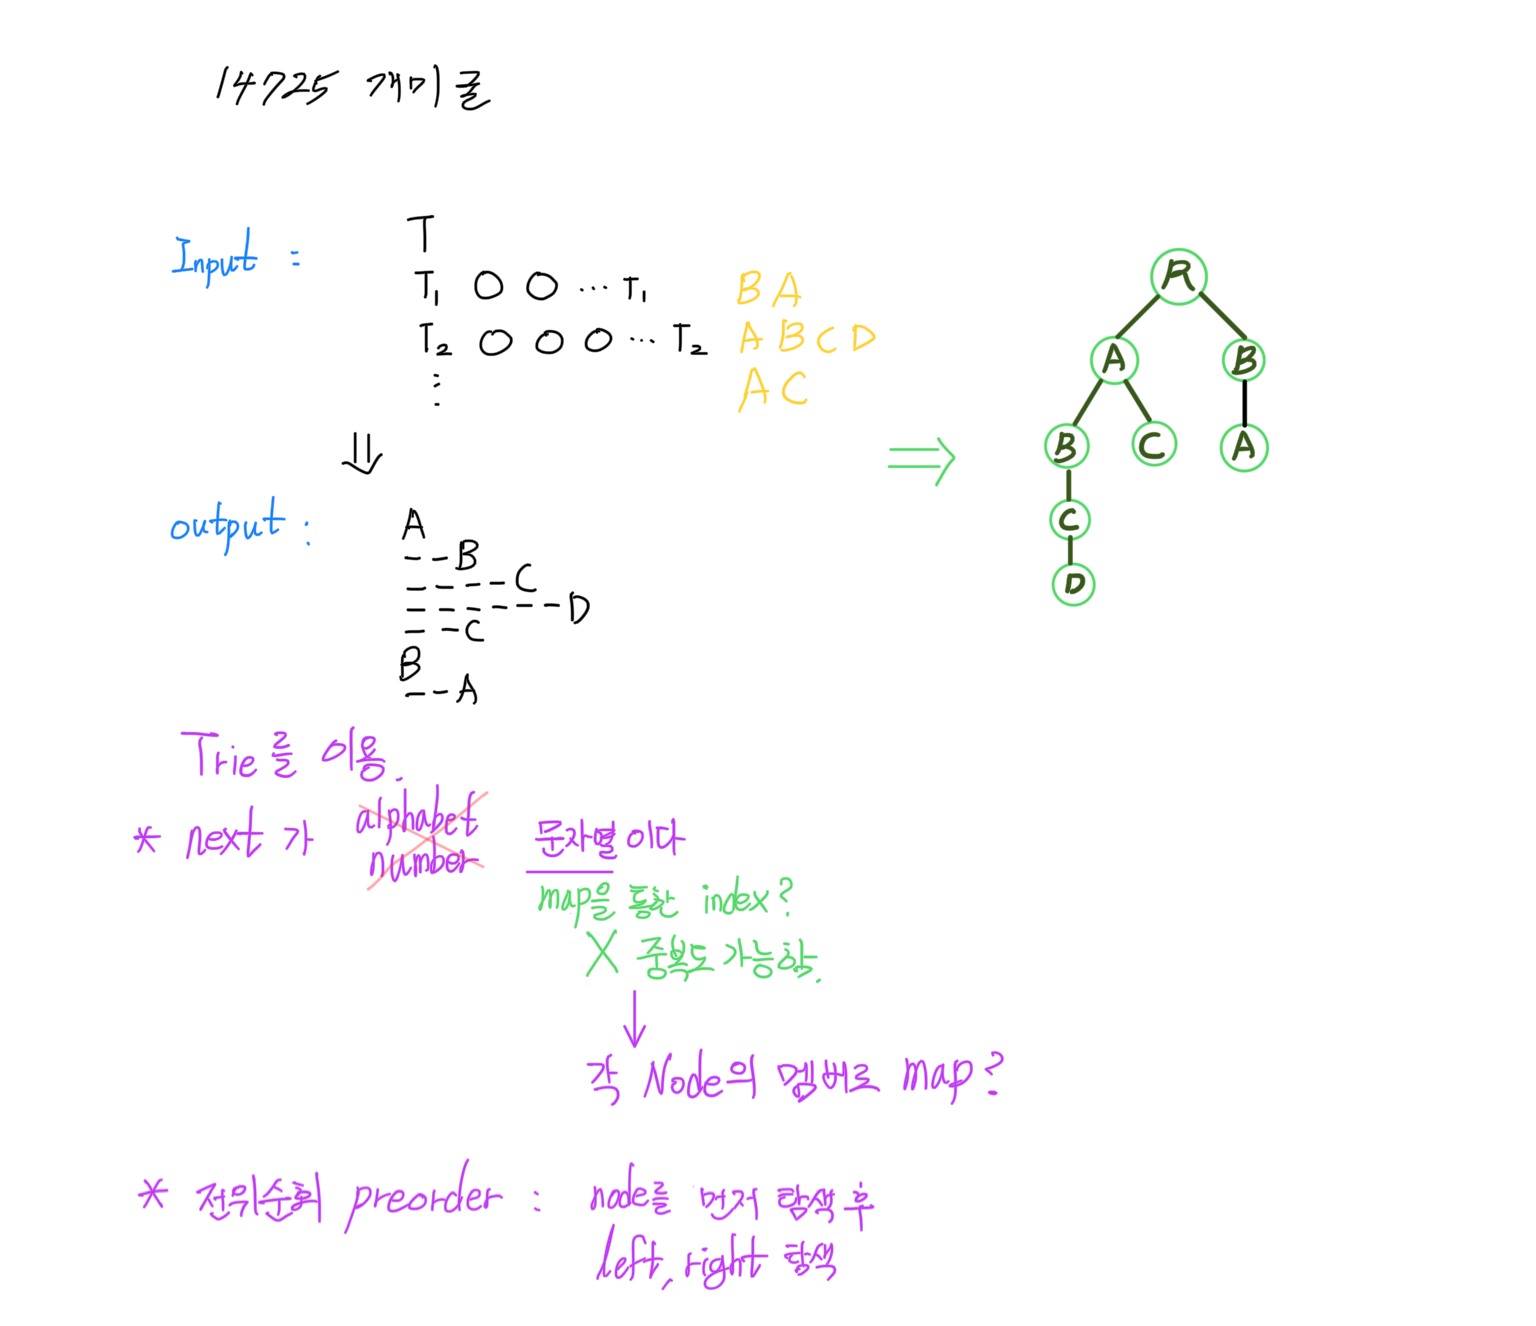 14725 개미굴
Input :
T
T1 O O ... T1 B A
T2 O O O ... T2 A B C D
⋮ A C
⇓
⇒
R
A B
B C A
C
D
output :
A
--B
----C
------D
--C
B
--A
Trie를 이용.
* next 가 alphabet number 문자열이다
map을 통한 index?
X 중복도 가능함.
↓
각 Node의 멤버로 map?
* 전위순회 preorder : node를 먼저 탐색 후
left, right 탐색